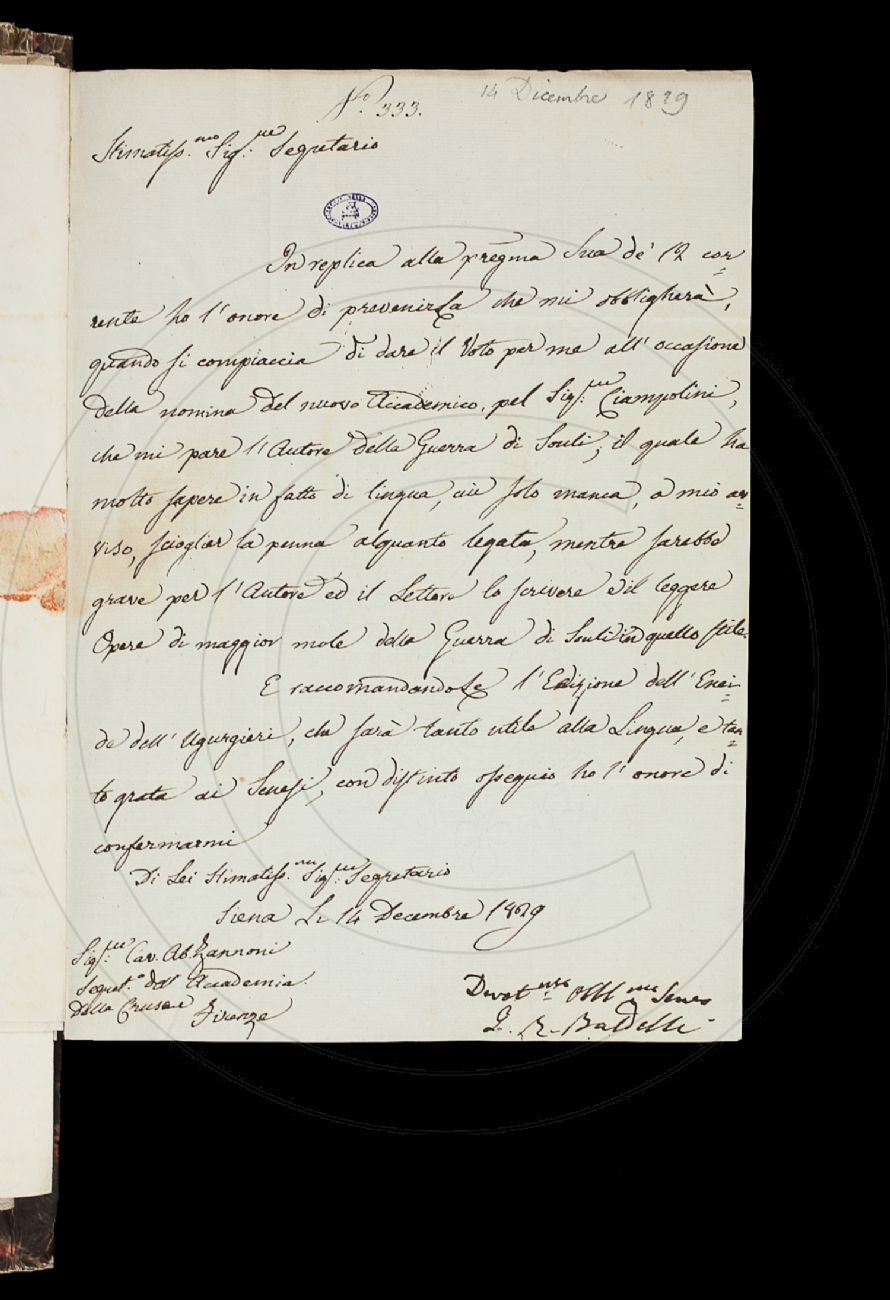 N.º 333.
14 Dicembre 1829
Stimatiss.mo Sig.re Segretario
In replica alla pregma Sua de' 12 cor=
rente ho l'onore di prevenirLa che mi obbligherà,
quando si compiaccia di dare il Voto per me all'occasione
della nomina del nuovo Accademico, pel Sig.re Ciampolini,
che mi pare l'Autore della Guerra di Souli; il quale ha
molto sapere in fatto di lingua, cui solo manca, a mio av=
viso, scioglier la penna alquanto legata, mentre sarebbe
grave per l'Autore ed il Lettore lo scrivere e il leggere
Opere di maggior mole della Guerra di Souli in quello stile.
E raccomandandoLe l'Edizione dell'Enei=
de dell'Ugurgieri, che sarà tanto utile alla Lingua, e tan=
to grata ai Senesi, con distinto ossequio ho l'onore di
confermarmi
Di Lei Stimatiss.mo Sig.re Segretario
Siena Li 14 Decembre 1829
Sig.re Cav. Ab. Zannoni
Segret.o dell'Accademia
della Crusca
Firenze
Devot.mo Obbl.mo Serv.
Baldelli